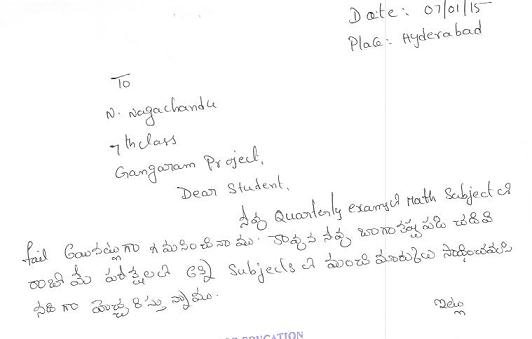 Date: 07/01/15
Place: Hyderabad
To
N. Nagachandu
7th class
Gangaram Project,
Dear Student,
నీవు Quarterly examsలో Math Subject లో
fail అయినట్లుగా గమనించినాము. కావున నీవు బాగా కష్టపడి చదివి
రాబోయే పరీక్షలలో అన్ని Subjects లో మంచి మార్కులు సాధించవలసి
నదిగా హెచ్చరిస్తున్నాము.
ఇట్లు
EDUCATION